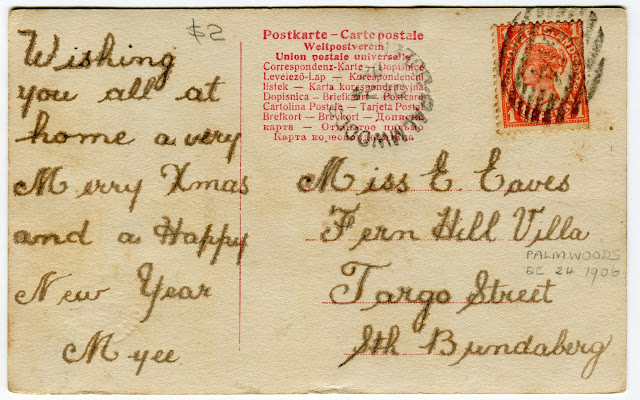 $2
Wishing
you all at
home a very
Merry Xmas
and a Happy
New Year
Myee
Postkarte – Carte postale
Weltpostverein
Union postale universelle
Correspondenz-Karte – Dopisnice
Levelező-Lap – Korespondenční
lístek – Karta korespondencyjna
Dopisnica – Briefkaart – Postcard
Cartolina Postale – Tarjeta Postal
Brefkort – Brevkort – Дописна
карта – Открытое письмо
Карта
QUEENSLAND
Miss E. Eaves
Fern Hill Villa
PALMWOODS
DE 24 1906
Targo Street
Sth Bundaberg